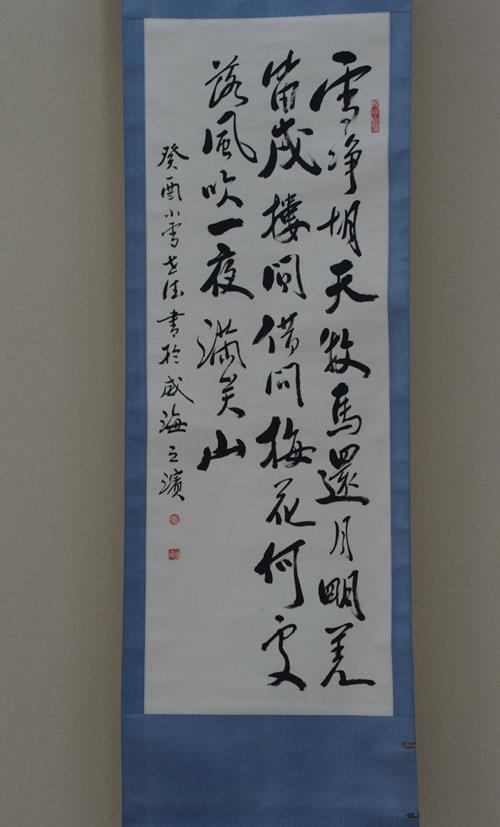 雪净胡天牧馬還月明羌
笛戍樓間借問梅花何處
落風吹一夜滿关山
癸酉小雪書於威海之濱